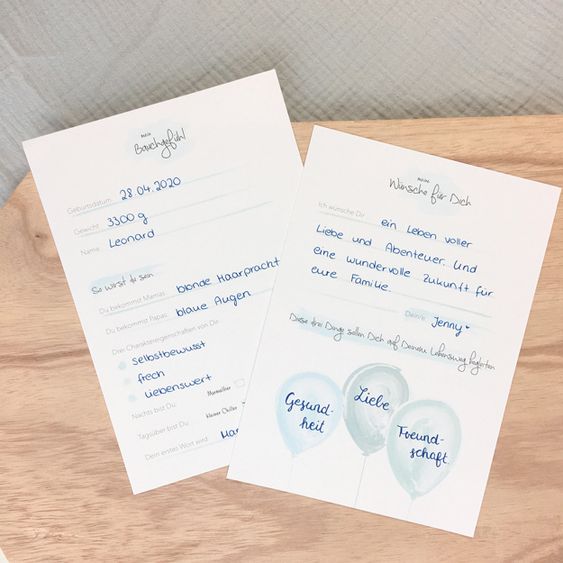 MEIN
Bauchgefühl
Geburtsdatum 28.04.2020
Gewicht 3300 g
Name Leonard
So wirst du sein
Du bekommst Mamas blonde Haarpracht
Du bekommst Papas blaue Augen
Drei Charaktereigenschaften von Dir
Selbstbewusst
frech
liebenswert
Nachts bist Du Murmeltier
Tagsüber bist Du kleiner Chiller
Dein erstes Wort wird
MEINE
Wünsche für Dich
Ich wünsche Dir ein Leben voller
Liebe und Abenteuer. Und
eine wundervolle Zukunft für
eure Familie.
Deine Jenny
Diese drei Dinge sollen Dich auf Deinem Lebensweg begleiten
Gesund-
heit
Liebe
Freund-
schaft.